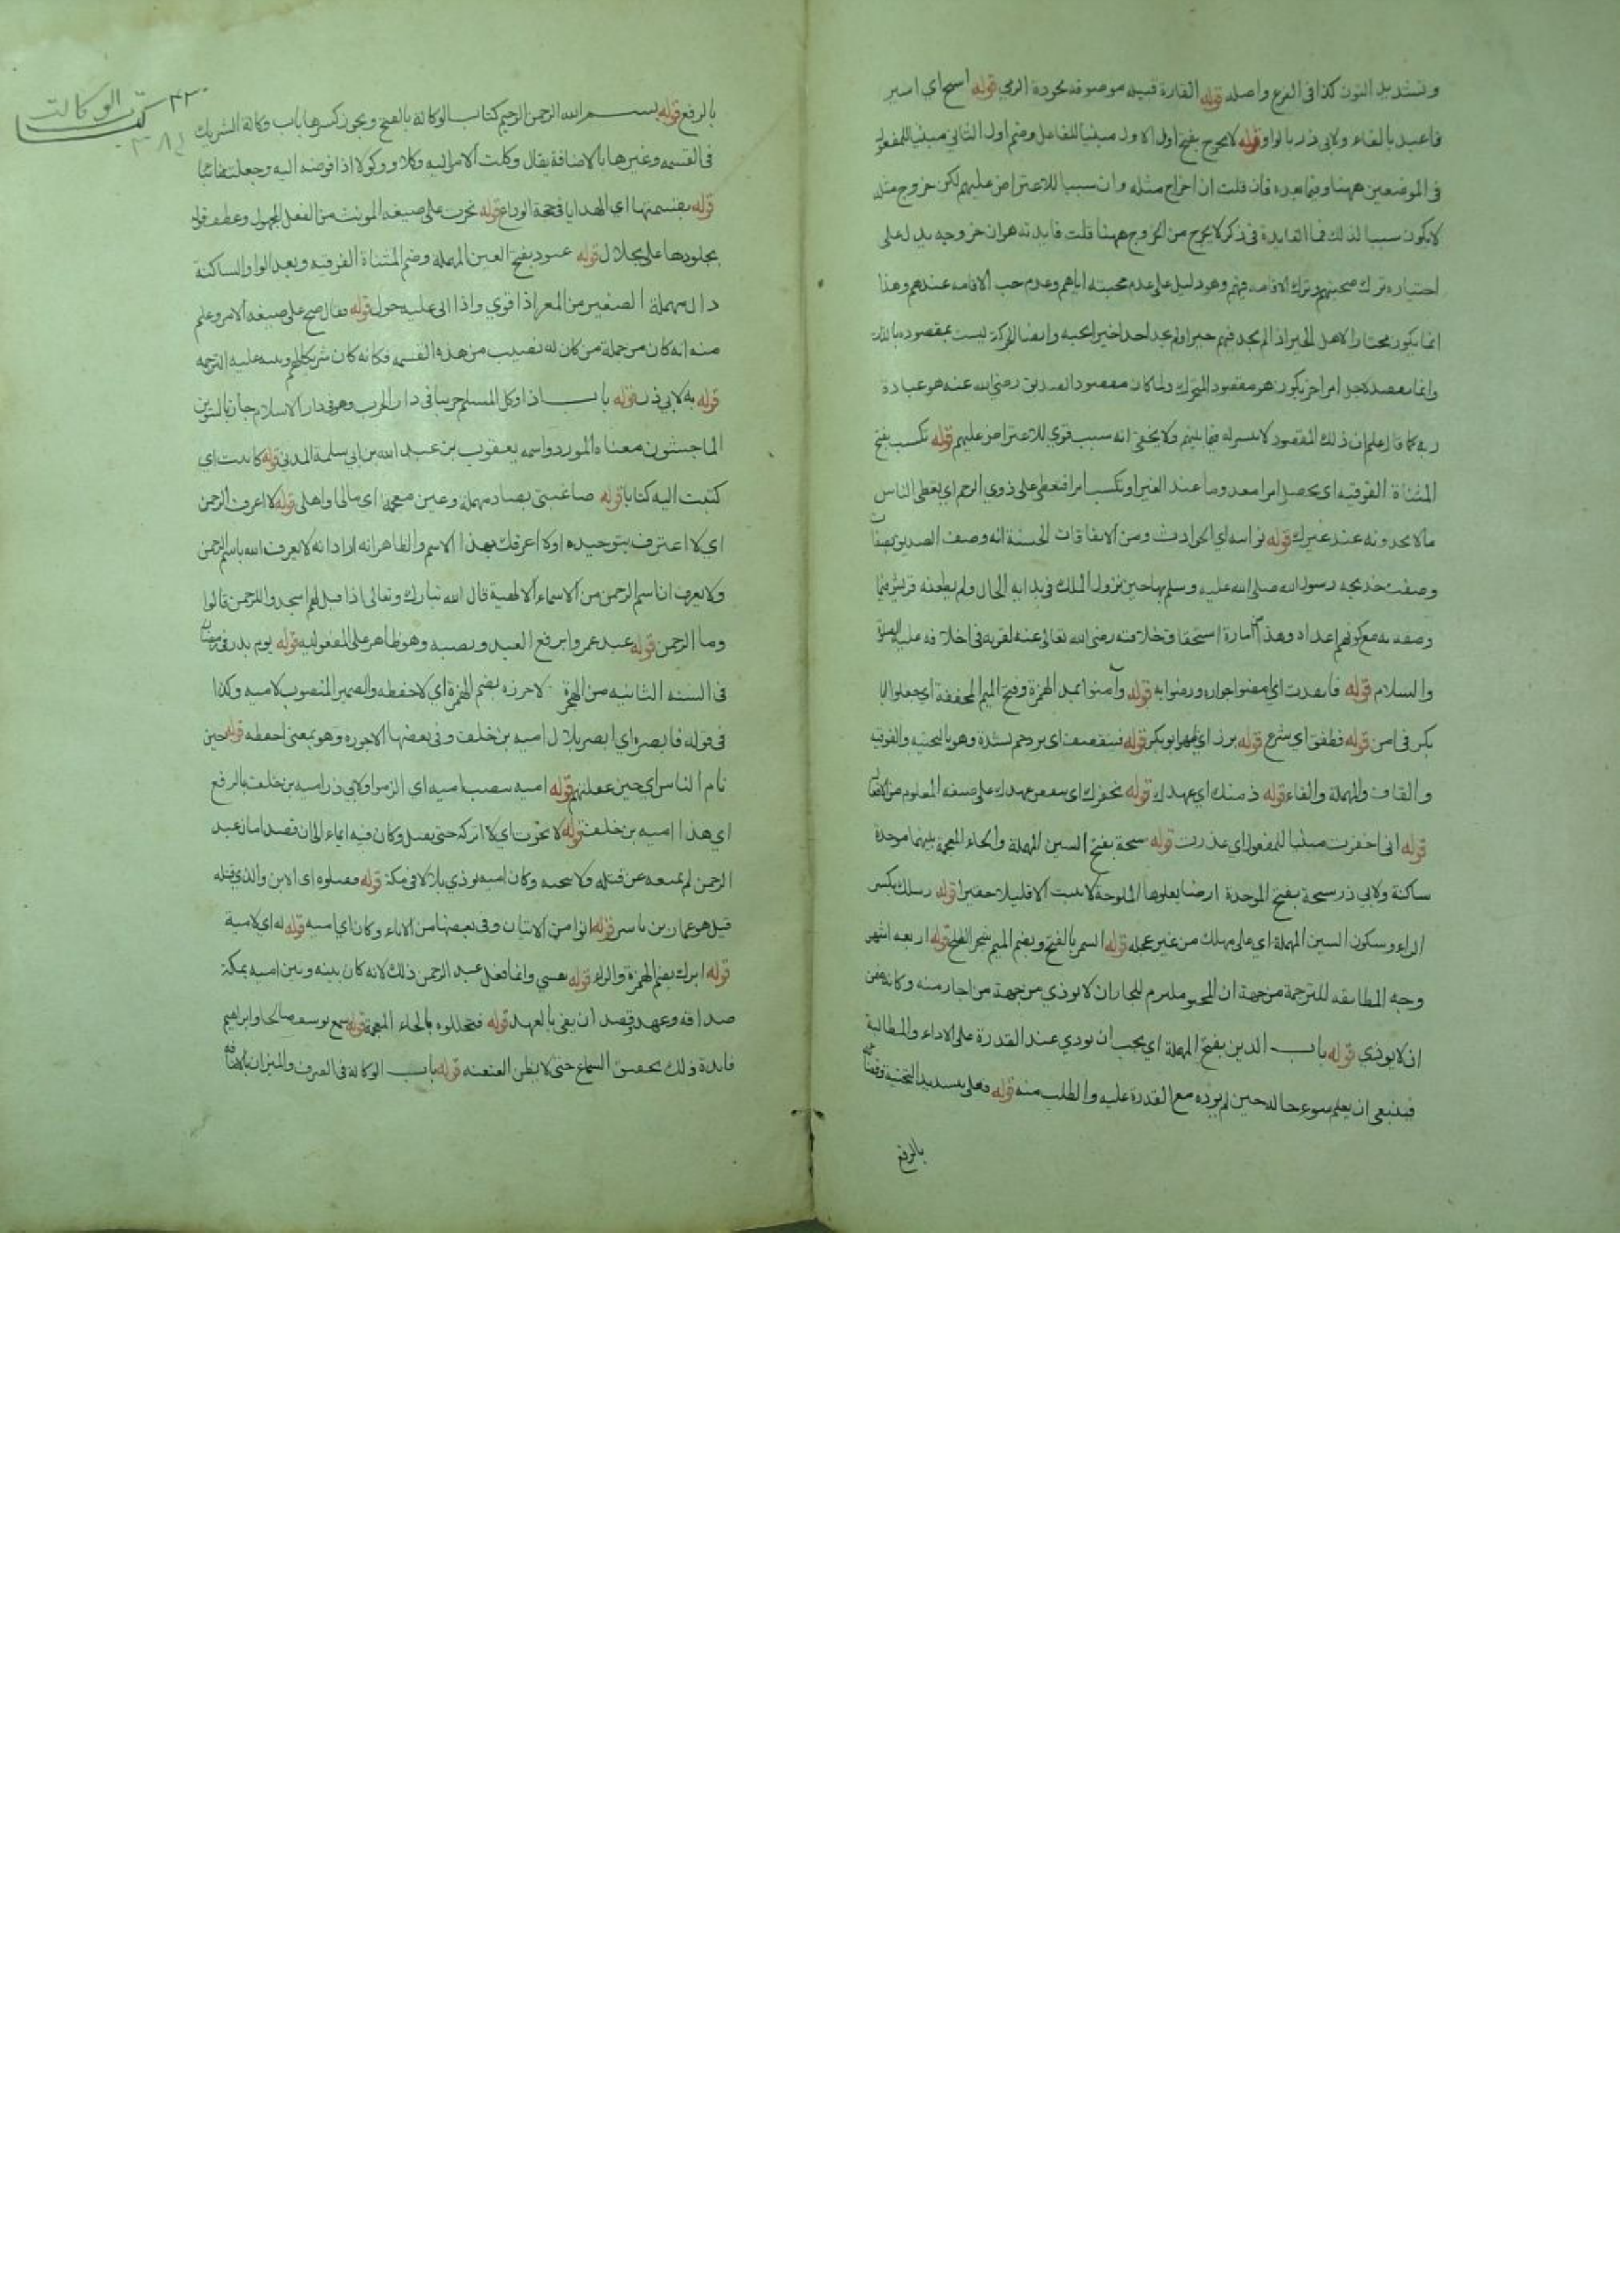 وتشديد النون كذا فى الفرع واصله قوله القارة قبيله موصوفه بجودة الرمى قوله اسيح اي اسير
فاعبد بالفاء ولابى ذر بالواو قوله لا يخرج بفتح اول الاول مبنيا للفاعل وضم اول الثانى مبنيا للمفعول
فى الموضعين ههنا وفيما بعده فان قلت ان اخراج مثله وان سببا للاعتراض عليهم لكن خروج مثله
لا يكون سببا لذلك فما الفايدة فى ذكر لا يخرج من الخروج ههنا قلت فايدته هو ان خروجه يدل على
اختياره ترك صحبتهم وترك الاقامه فيهم وهو دليل على عدم محبته اياهم وعدم حب الاقامه عندهم وهذا
انما يكون مختارا لاهل الخير اذا لم يجد فيهم خيرا ولم يجد احدا خيرا يحبه وايضا الحركة ليست بمقصوده بالذات
وانما يقصد لاجل امر اخر يكون هو مقصود المتحرك ولما كان مقصود الصديق رضى الله عنه هو عبادة
ربه كما قال علم ان ذلك المقصود لا يتيسر له فيما بينهم ولا يخفى انه سبب قوي للاعتراض عليهم قوله تكسب بفتح
المثناة الفوقيه اى يحصل امرا معدوما عند الغير او تكسب امرا فتعطى على ذوي الرحم اي يعطى الناس
مالا يجدونه عند غيرك قوله نوائب اى الحوادث ومن الاتفاقات الحسنة انه وصف الصديق بصفات
وصفت خديجه رسول الله صلى الله عليه وسلم بها حين نزول الملك فى بدايه الحال ولم يطعنه قريش فيما
وصفه به مع كونهم اعداء وهذا امارة استحقاق خلافته رضى الله تعالى عنه لقربه فى اخلاقه عليه الصلوة
والسلام قوله فانفذت اي امضوا جواره ورضوا به قوله وآمنوا بمد الهمزة وفتح الميم المخففة اى جعلوا ابا
بكر فى امن قوله فطفق اي شرع قوله برز اي ظهر ابو بكر قوله فيتقصف اى يزدحم بشدة وهو بالتحتيه والفوقيه
والقاف والمهملة والفاء قوله ذمتك اي عهدك قوله نخفرك اى ننقض عهدك على صيغه المعلوم من الافعال
قوله انى اخفرت مبنيا للمفعول اي غدرت قوله سبخة بفتح السين المهملة والخاء المعجمة بينهما موحدة
ساكنة ولابي ذر سبخة بفتح الموحدة ارضا يعلوها الملوحة لا تنبت الا قليلا حقيرا قوله رسلك بكسر
الراء وسكون السين المهملة اي على مهلك من غير عجله قوله السمر بالفتح وبضم الميم شجر الطلح قوله اربعه اشهر
وجه المطابقه للترجمة من جهة ان المجير ملتزم للمجار ان لا يوذي من جهة من اجار منه وكانه ضمن
ان لا يوذي قوله باب الدين بفتح المهملة اي يجب ان يودي عند القدرة على الاداء والمطالبة
فينبغى ان يعلم سوء حاله حين لم يوده مع القدرة عليه والطلب منه قوله فعلى بتشديد التحتية وقضاؤه
بالرفع
٢٢٠
كتاب الوكالت
بالرفع قوله بسم الله الرحمن الرحيم كتاب الوكالة بالفتح ويجوز كسرها باب وكالة الشريك
فى القسمه وغيرها بالاضافة يقال وكلت الامر اليه وكلا ووكولا اذا فوضه اليه وجعلته نائبا
قوله بقسمتها اي الهدايا فى حجة الوداع قوله نحرت على صيغه المونث من الفعل المجهول وعطف قوله
بجلودها على بجلال قوله عتود بفتح العين المهملة وضم المثناة الفوقيه وبعد الواو الساكنة
دال مهملة الصغير من المعز اذا قوي واذا اتى عليه حول قوله فقال ضح على صيغه الامر وعلم
منه انه كان من جملة من كان له نصيب من هذه القسمه فكانه كان شريكا لهم وبينه عليه الترجمه
قوله به لابى ذر قوله باب اذا وكل المسلم حربيا فى دار الحرب وهو فى دار الاسلام جاز بالتنوين
الماجشون معناه المورد واسمه يعقوب بن عبد الله بن ابي سلمة المدنى قوله كاتبت اى
كتبت اليه كتابا قوله صاغيتى بصاد مهملة وغين معجمة اى مالى واهلى قوله لا اعرف الرحمن
اي لا اعترف بتوحيده او لا اعرفك بهذا الاسم والظاهر انه اراد انه لا يعرف الله باسم الرحمن
ولا يعرف ان اسم الرحمن من الاسماء الالهية قال الله تبارك وتعالى اذا قيل لهم اسجدوا للرحمن قالوا
وما الرحمن قوله عبد عمرو برفع العبد ونصبه وهو ظاهر على المفعوليه قوله يوم بدر فى رمضان
فى السنه الثانيه من الهجرة لاحرزه بضم الهمزة اي لاحفظه والضمير المنصوب لاميه وكذا
فى قوله فابصره اي ابصر بلال اميه بن خلف وفى بعضها الاجوره وهو بمعنى احفظه قوله حين
نام الناس اي حين غفلتهم قوله اميه بنصب اميه اى الزموا ولابي ذر اميه بن خلف بالرفع
اي هذا اميه بن خلف قوله لا نجوت اي لا اتركه حتى يقتل وكان فيه ايماء الى ان قصد امان عبد
الرحمن لم يمنعه عن قتله ولا ينجيه وكان اميه يوذي بلالا فى مكة قوله فقتلوه اى الابن والذي قتله
قيل هو عمار بن ياسر قوله اتوا من الاتيان وفى بعضها من الاباء وكان اي اميه قوله له اي لامية
قوله ابرك بضم الهمزة والراء قوله نفسي وانما فعل عبد الرحمن ذلك لانه كان بينه وبين اميه بمكة
صداقه وعهد وقصد ان يفى بالعهد قوله فتخللوه بالخاء المعجمة قوله سمع يوسف صالحا وابراهيم
فايدة ذلك تحقيق السماع حتى لا يظن العنعنه قوله باب الوكالة فى الصرف والميزان بالاضافه